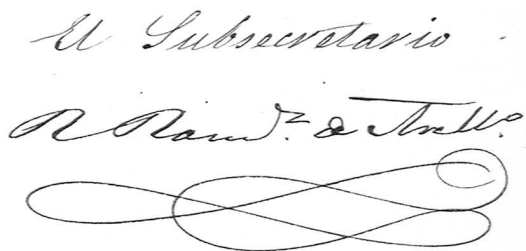 El Subsecretario
R Ramz. de Arello.